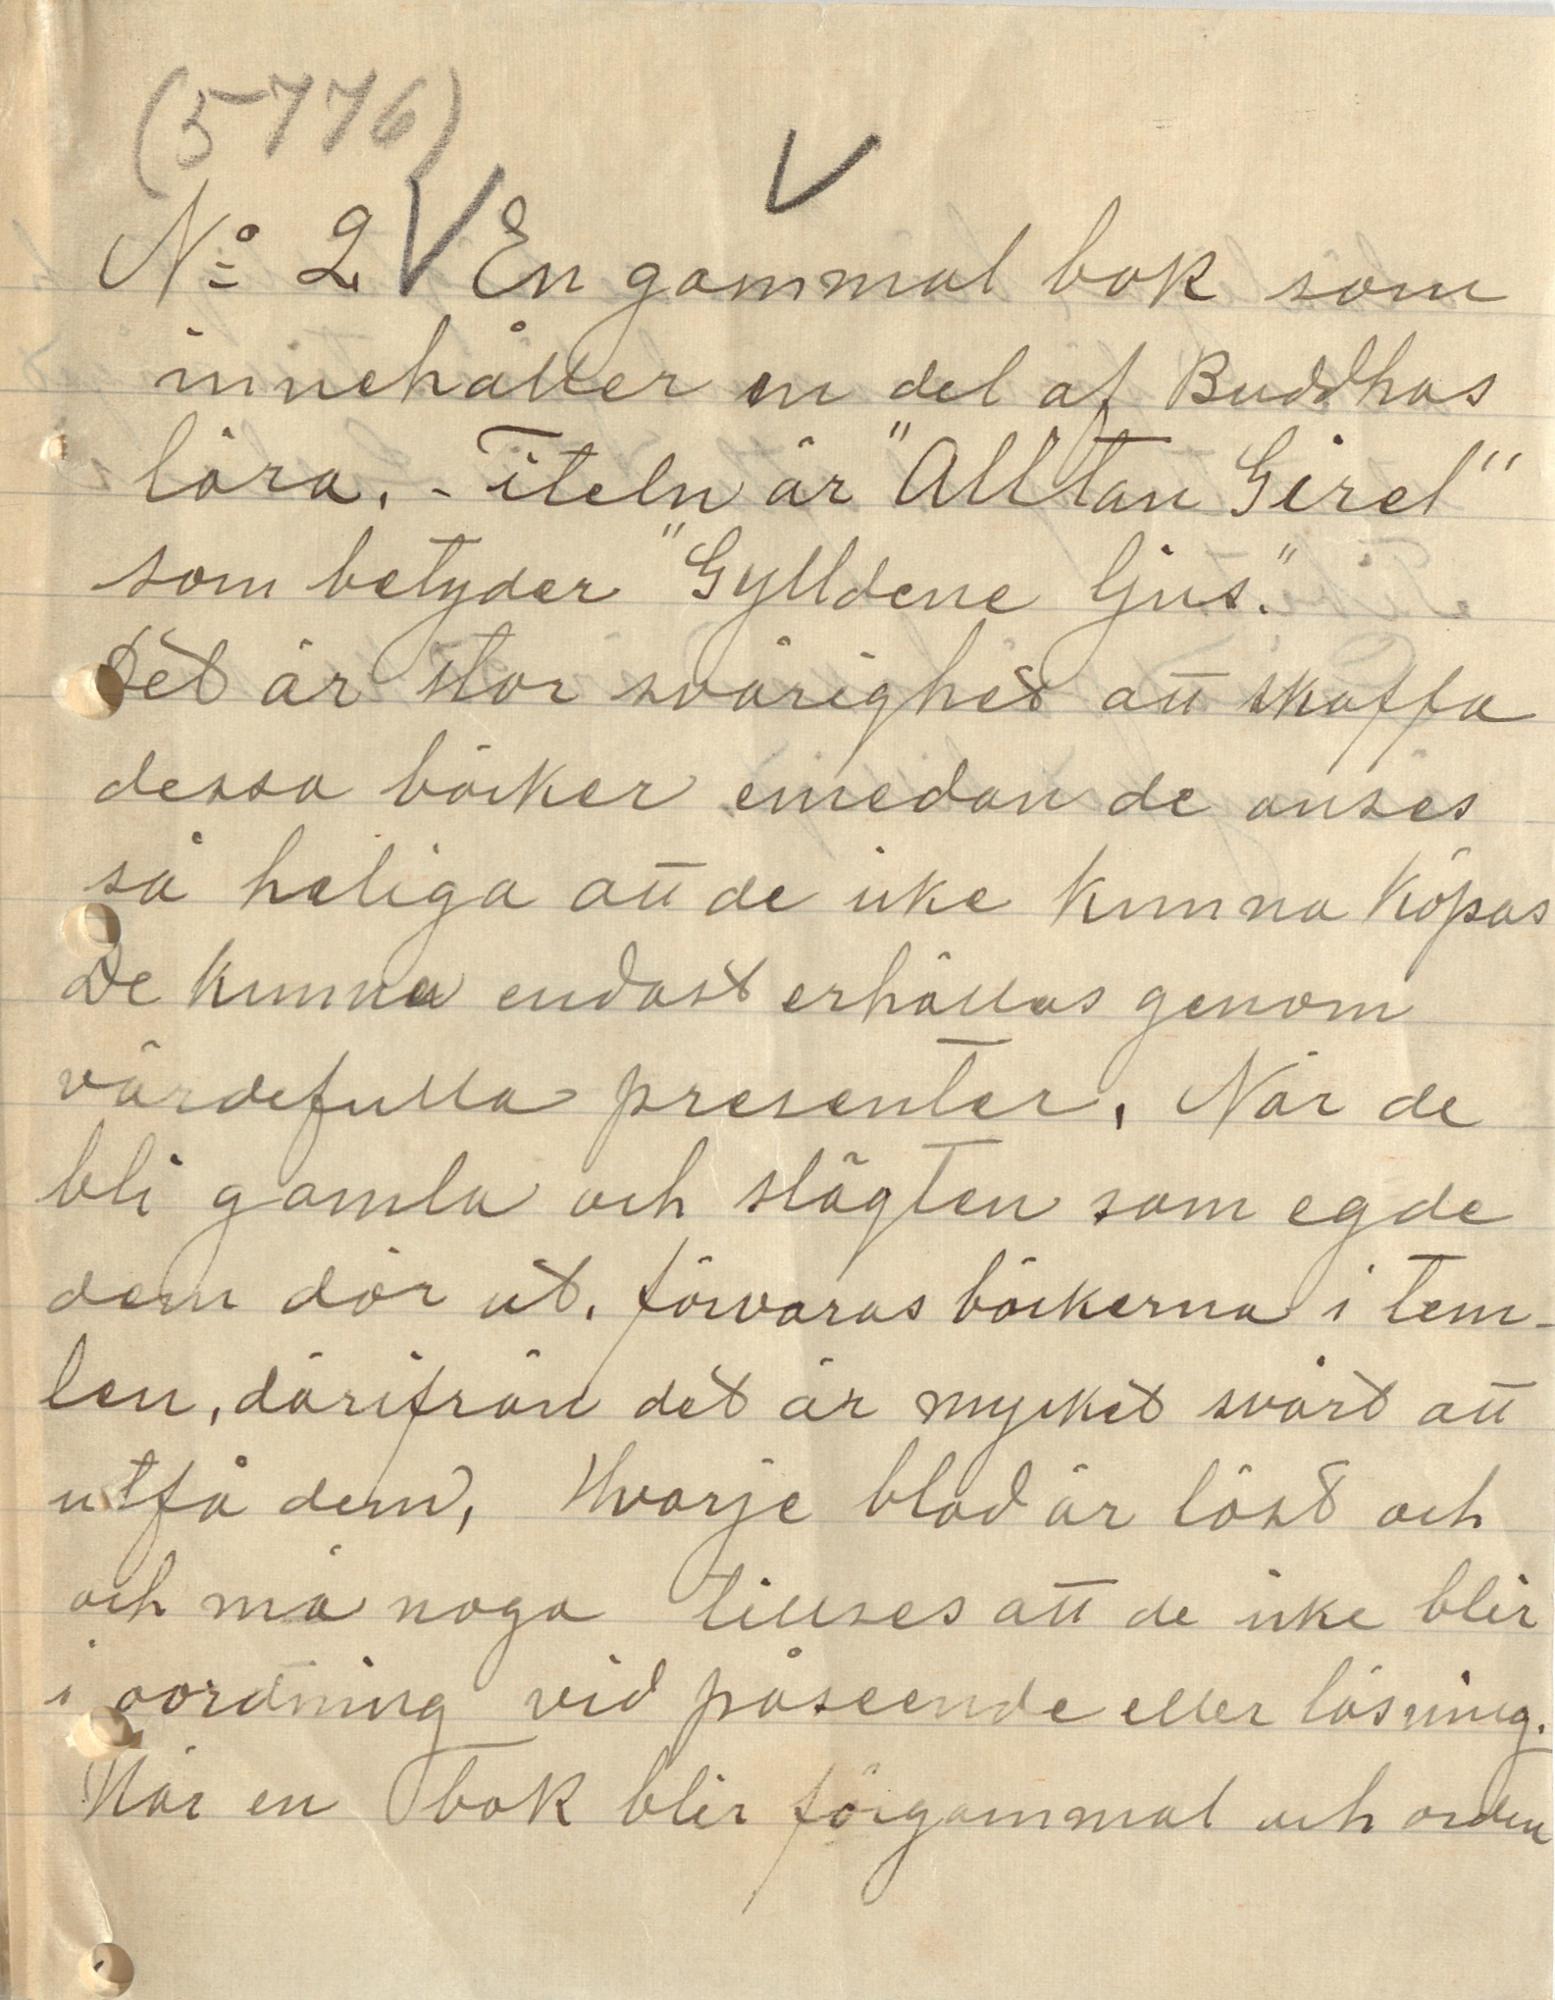 (5776)
V
No 2 V En gammal bok som
innehåller en del af Buddhas
lära. - Titeln är "Alltan Girel"
som betyder "Gylldene ljus."
Det är stor svårighet att skaffa
dessa böcker emedan de anses
så heliga att de icke kunna köpas
De kunna endast erhållas genom
värdefulla presenter. När de
bli gamla och slägten som egde
dem dör ut, förvaras böckerna i tem-
len, därifrån det är mycket svårt att
utfå dem, Hvarje blad är löst och
och må noga tillses att de icke blir
i oordning vid påseende eller läsning.
När en bok blir förgammal och orden